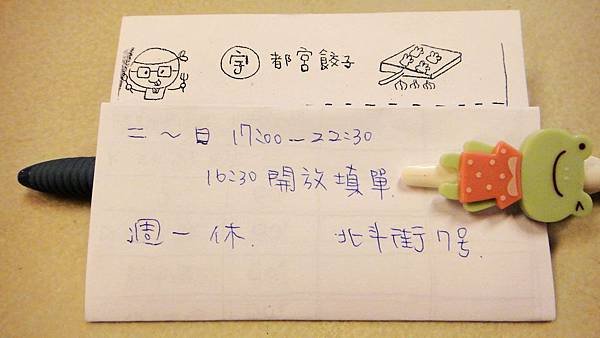 宇 都宮餃子
二～日 17:00-22:30
16:30 開放填單.
週一休. 北斗街7号.